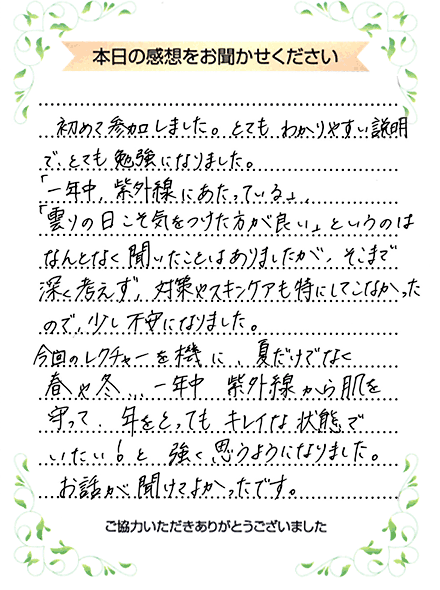 本日の感想をお聞かせください
初めて参加しました。とても わかりやすい説明
で、とても勉強になりました。
「一年中、紫外線にあたっている」、
「曇りの日こそ気をつけた方が良い」というのは
なんとなく聞いたことはありましたが、そこまで
深く考えず、対策やスキンケアも特にしてこなかった
ので、少し不安になりました。
今回のレクチャーを機に、夏だけでなく
春や冬、、、一年中 紫外線から肌を
守って、年をとっても キレイな状態で
いたい!と 強く思うようになりました。
お話が聞けてよかったです。
ご協力いただきありがとうございました